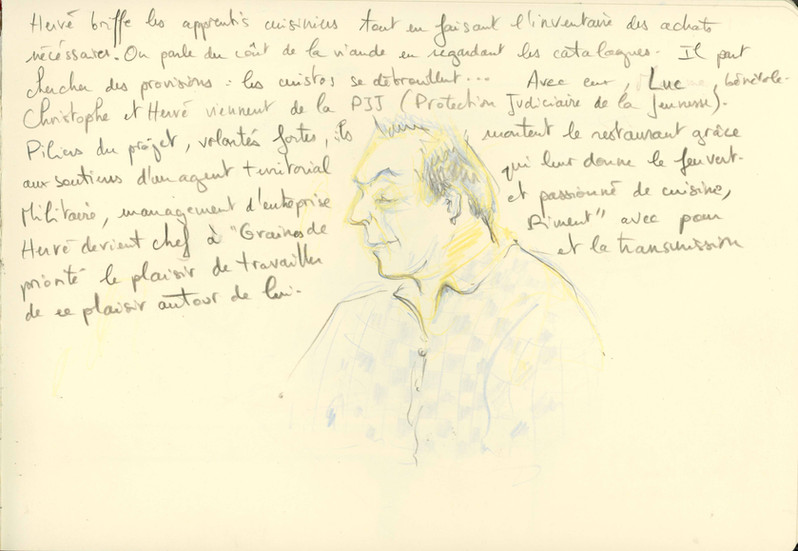 Hervé briffe les apprentis cuisiniers tout en faisant l'inventaire des achats
nécessaires. On parle du coût de la viande en regardant les catalogues. Il part
chercher des provisions : les cuistos se débrouillent... Avec eux, Luc, bénévole.
Christophe et Hervé viennent de la PJJ (Protection Judiciaire de la Jeunesse).
Piliers du projet, volontés fortes, ils montent le restaurant grâce
aux soutiens d'un agent territorial qui leur donne le feu vert.
Militaire, management d'entreprise et passionné de cuisine,
Hervé devient chef à "Graines de Piment" avec pour
priorité le plaisir de travailler et la transmission
de ce plaisir autour de lui.